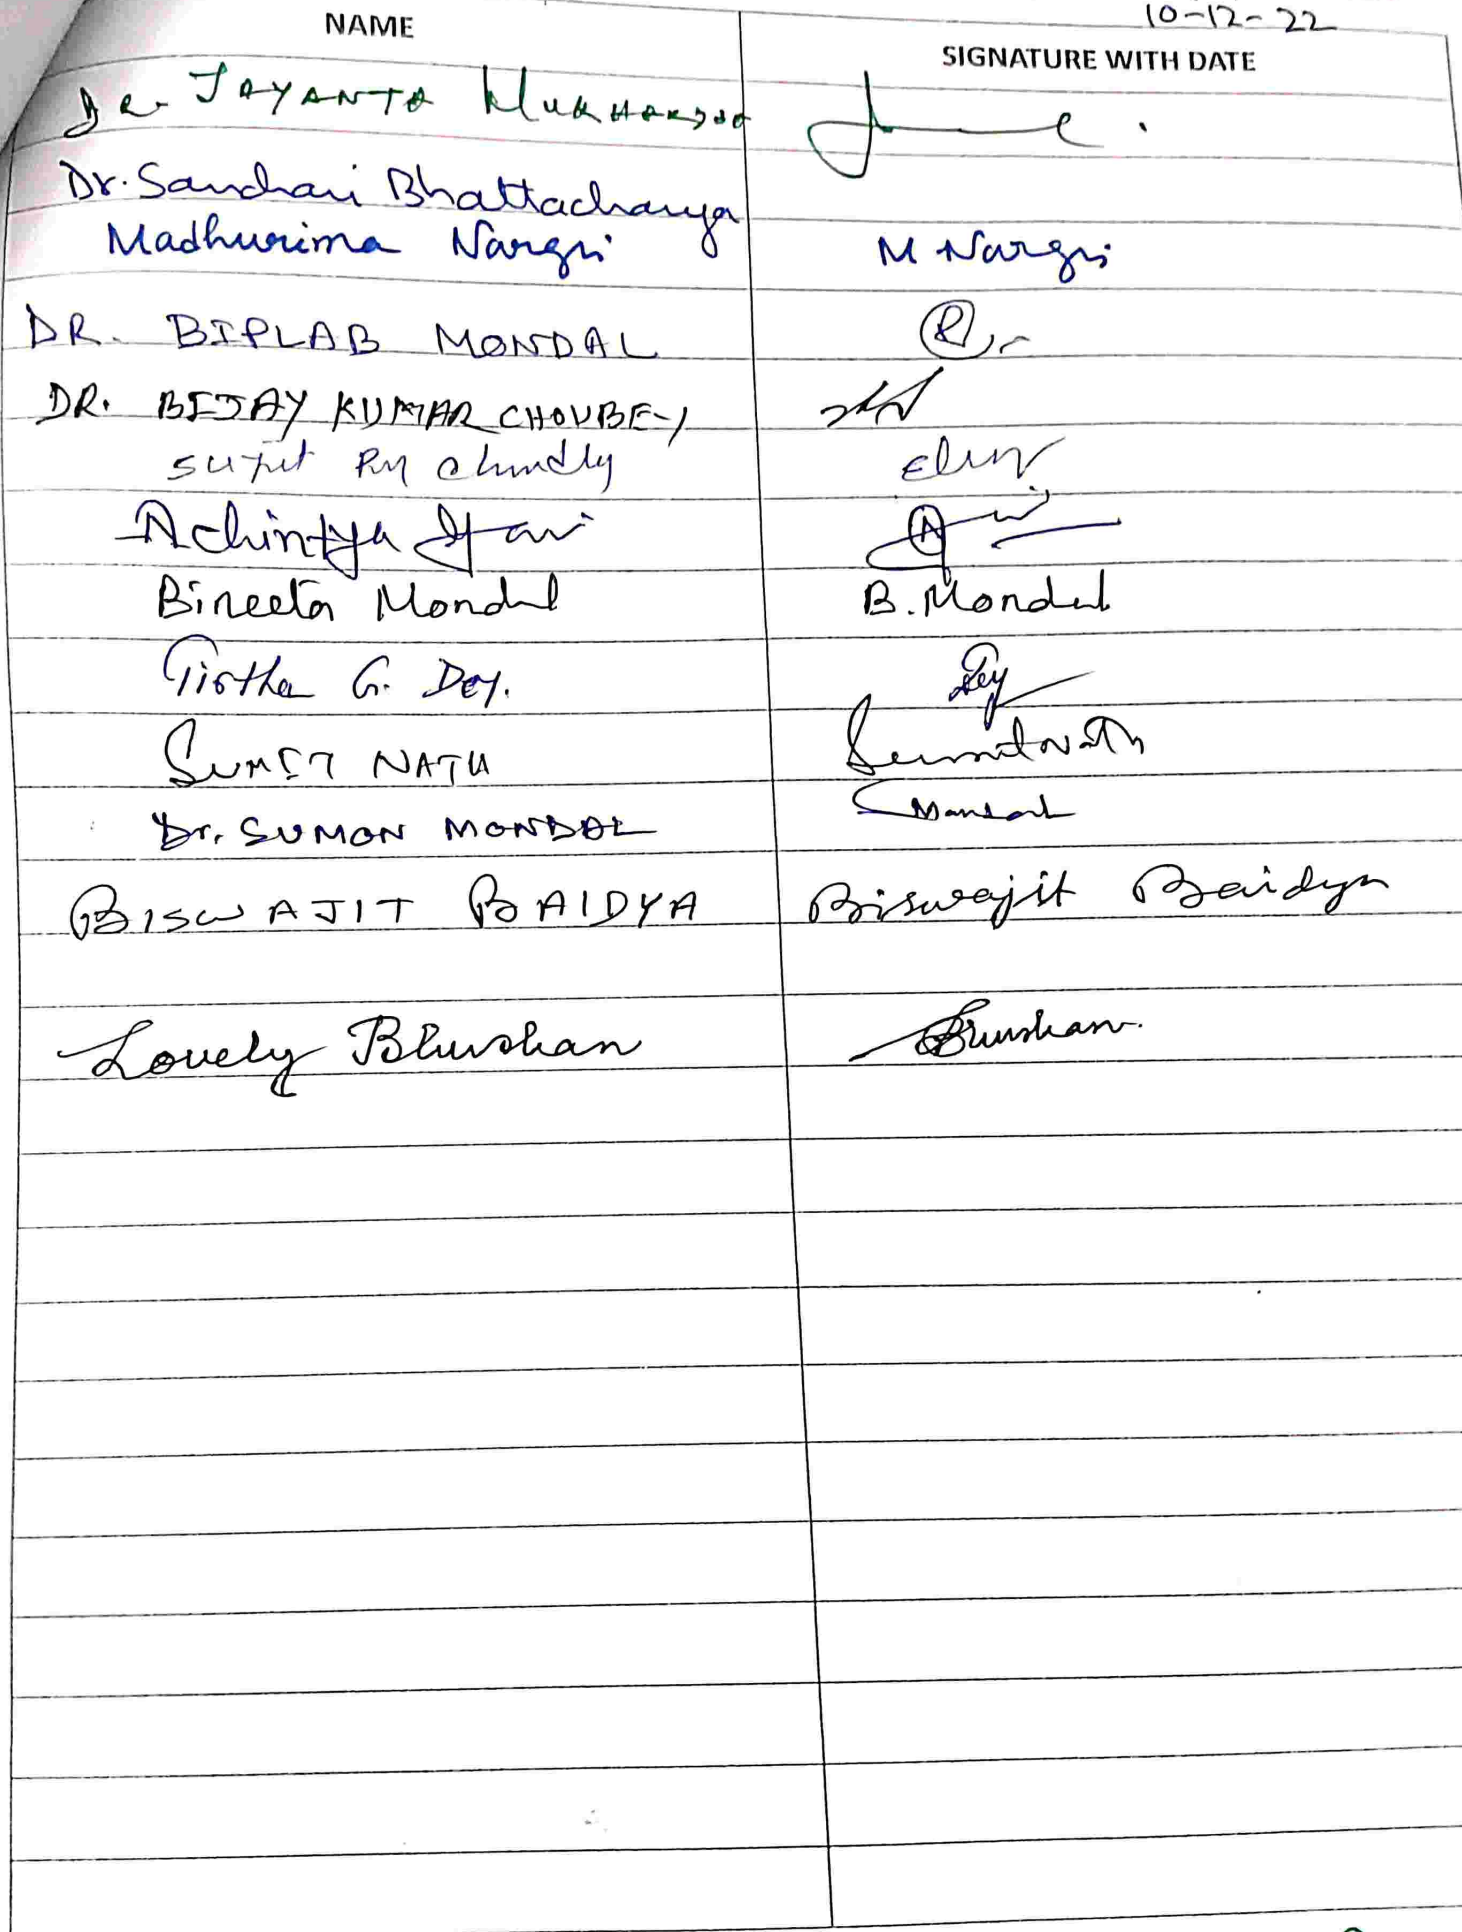 10-12-22
NAME
SIGNATURE WITH DATE
Dr. JAYANTA
Dr. Sanchari Bhattacharya
Madhurima Nargis M Nargis
DR. BIPLAB MONDAL
DR. BIJAY KUMAR CHOUBEY
Achintya
Bineeta Mondal B. Mondal
Tirtha G. Dey. Dey
SUMIT NATH Sumit Nath
Dr. SUMON MONDAL SMondal
BISWAJIT BAIDYA Biswajit Baidya
Lovely Bhushan Bhushan